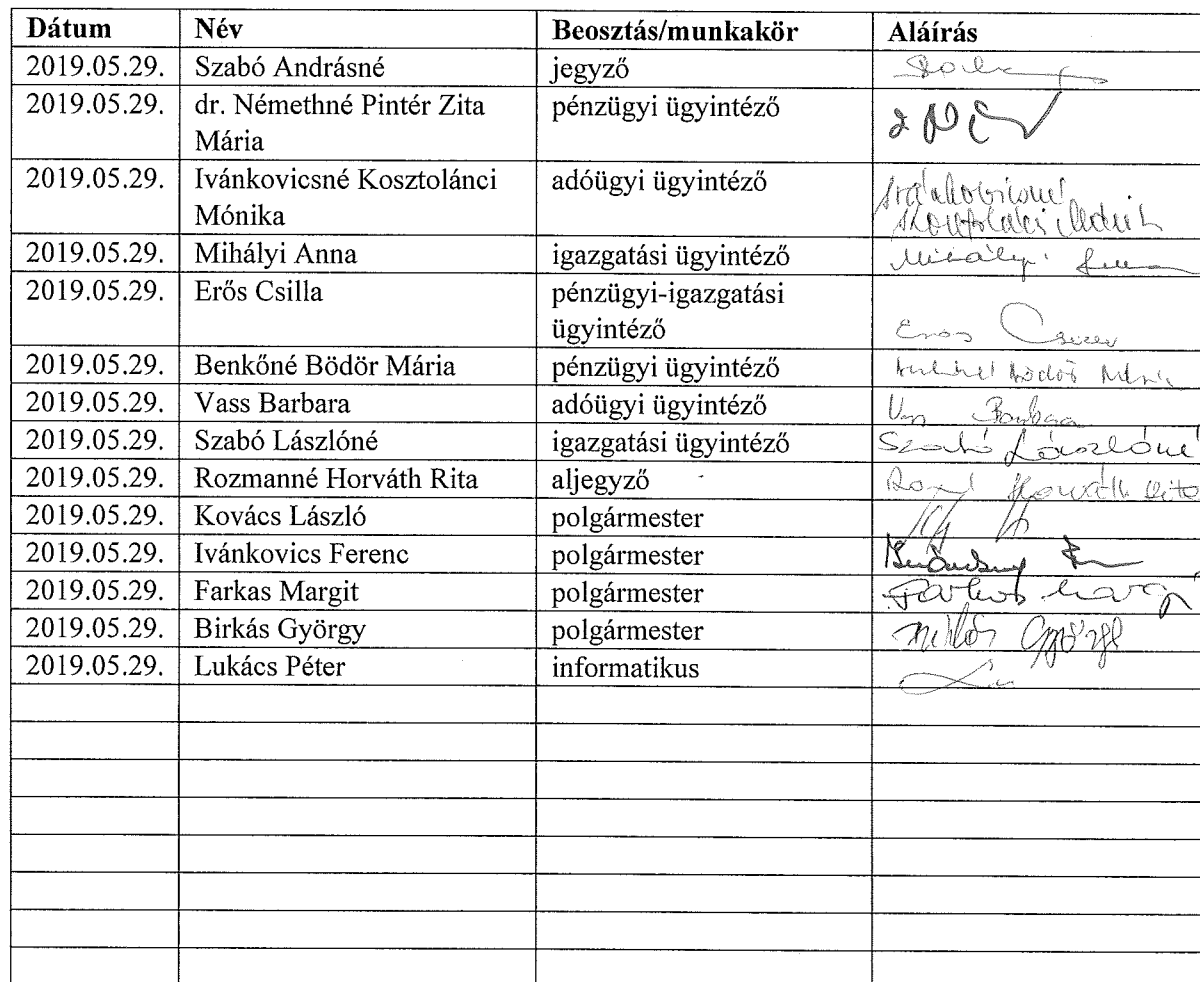 Dátum Név Beosztás/munkakör Aláírás
2019.05.29. Szabó Andrásné jegyző
2019.05.29. dr. Némethné Pintér Zita pénzügyi ügyintéző
Mária
2019.05.29. Ivánkovicsné Kosztolánci adóügyi ügyintéző
Mónika
2019.05.29. Mihályi Anna igazgatási ügyintéző Mihályi
2019.05.29. Erős Csilla pénzügyi-igazgatási
ügyintéző Erős Csilla
2019.05.29. Benkőné Bödör Mária pénzügyi ügyintéző
2019.05.29. Vass Barbara adóügyi ügyintéző
2019.05.29. Szabó Lászlóné igazgatási ügyintéző Szabó Lászlóné
2019.05.29. Rozmanné Horváth Rita aljegyző Horváth Rita
2019.05.29. Kovács László polgármester
2019.05.29. Ivánkovics Ferenc polgármester
2019.05.29. Farkas Margit polgármester Farkas
2019.05.29. Birkás György polgármester György
2019.05.29. Lukács Péter informatikus